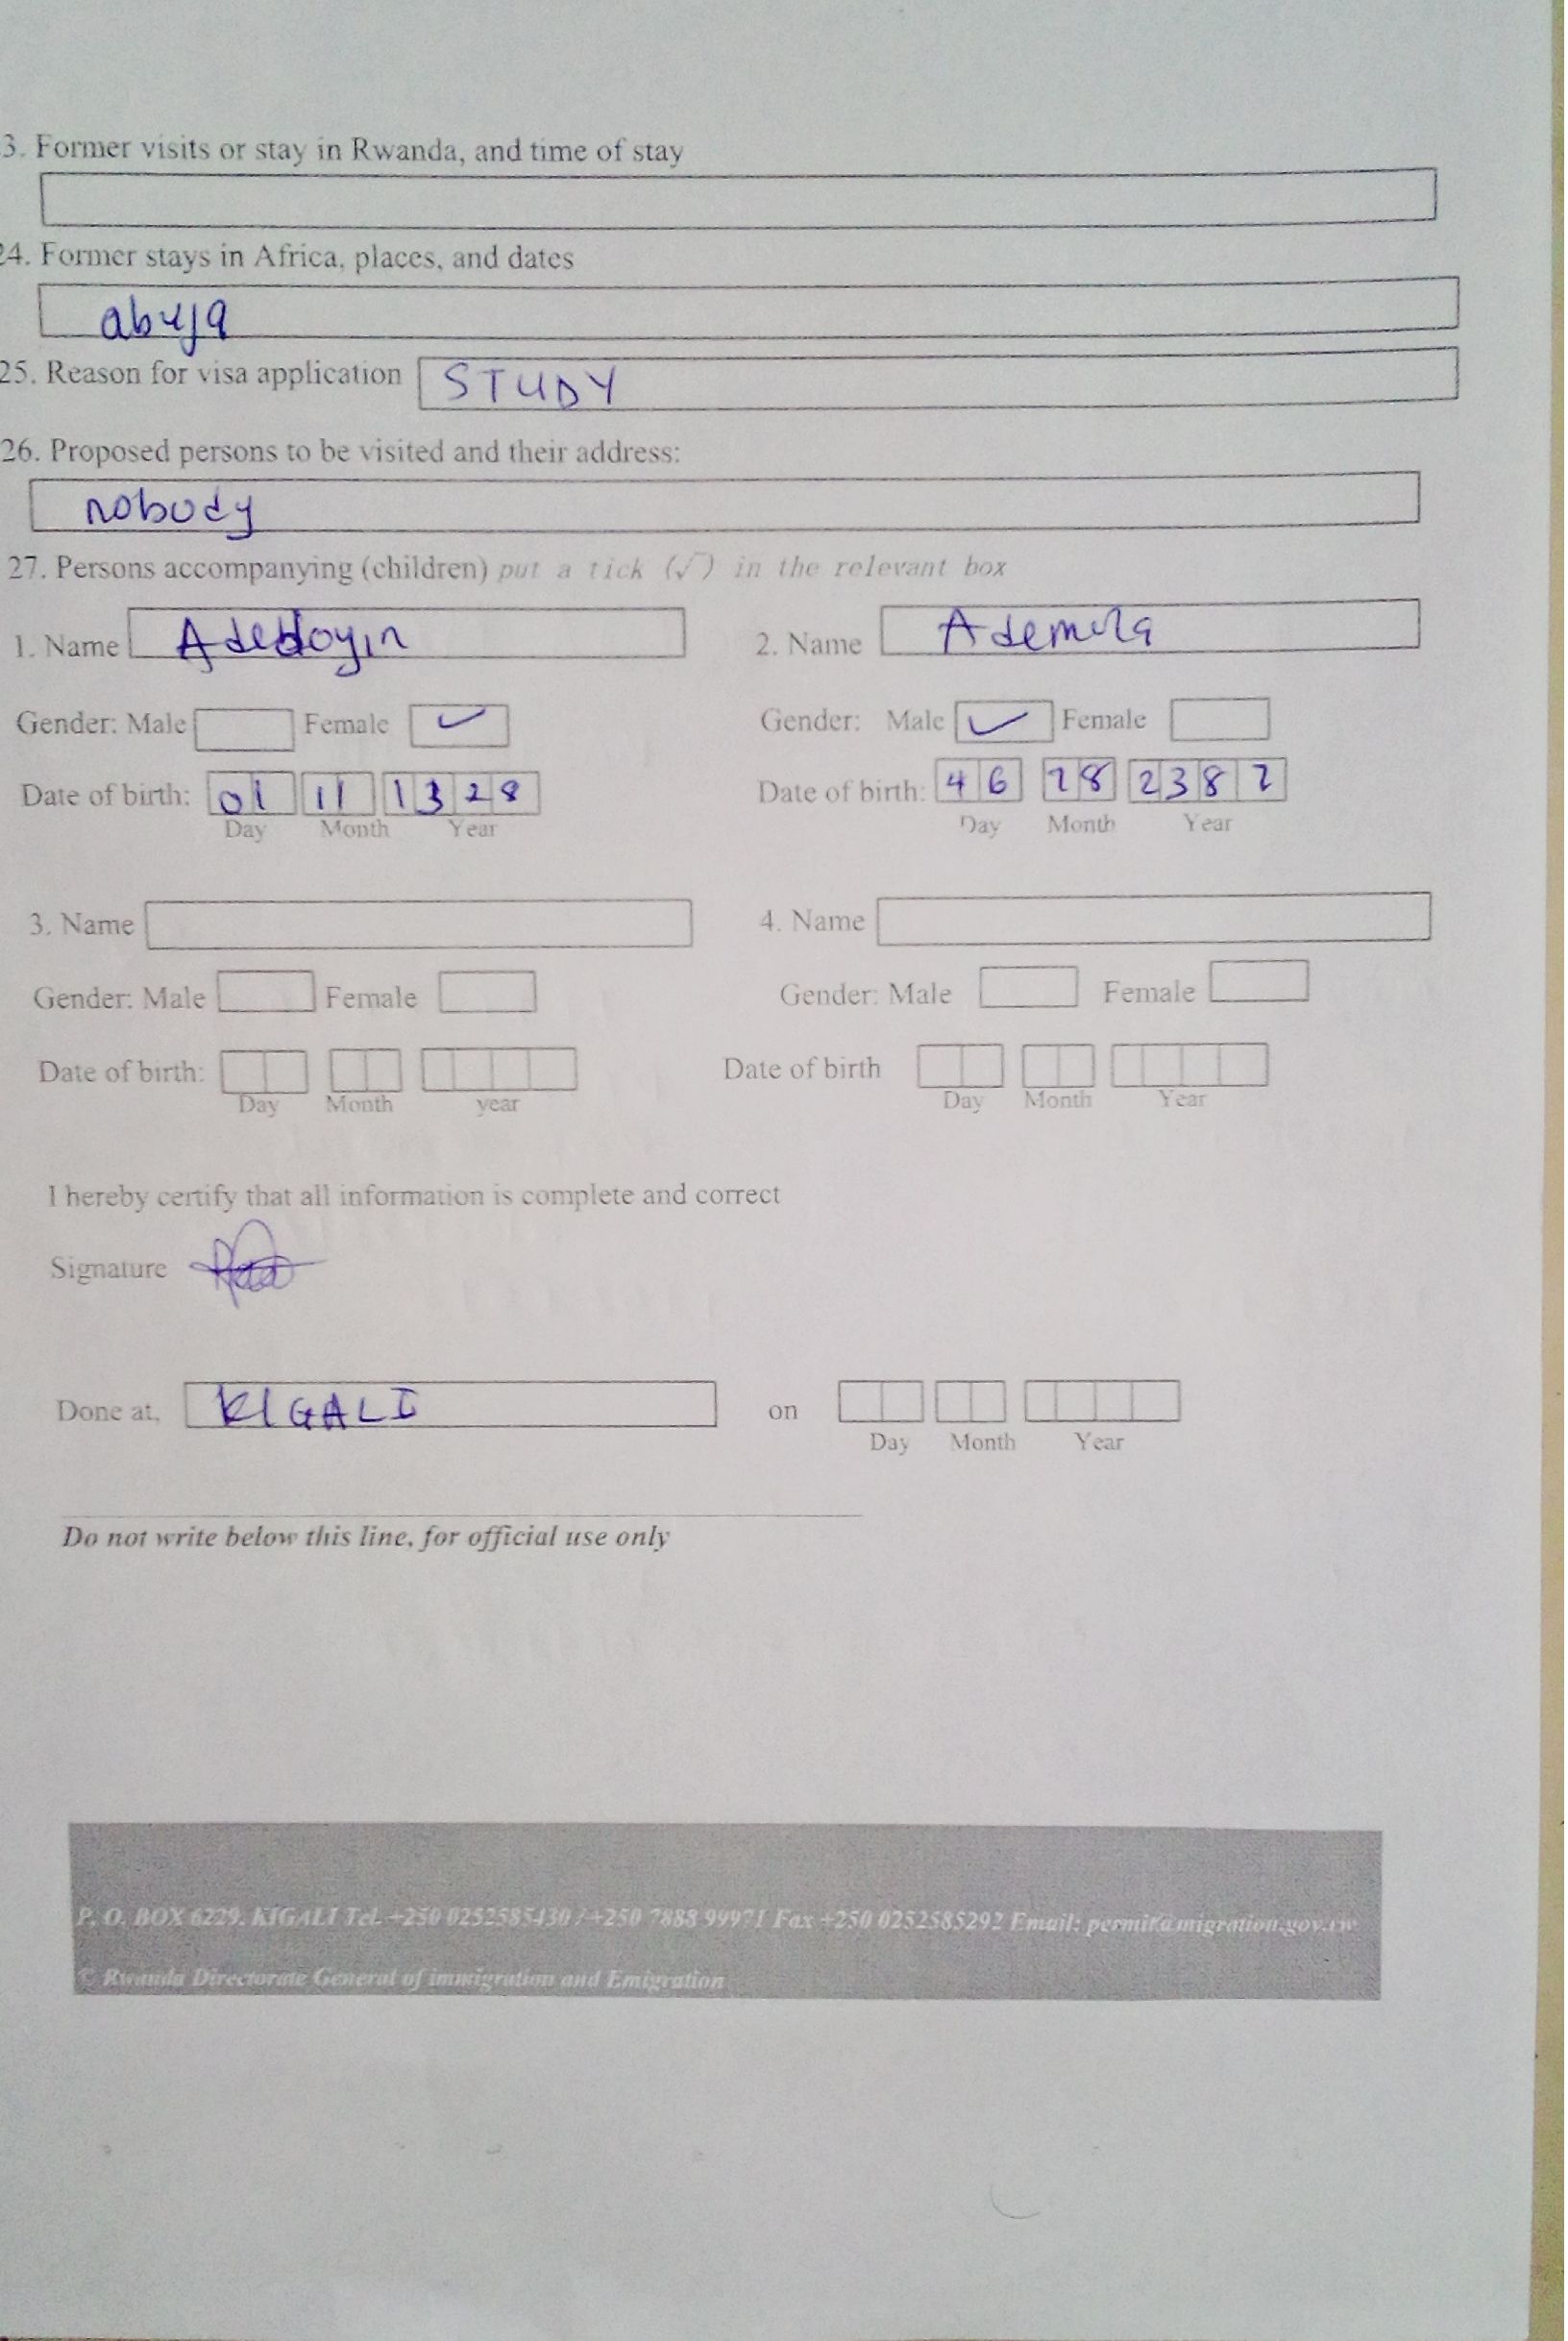 3. Former visits or stay in Rwanda, and time of stay
24. Former stays in Africa, places, and dates
abuja
25. Reason for visa application STUDY
26. Proposed persons to be visited and their address:
nobody
27. Persons accompanying (children) put a tick (√) in the relevant box
1. Name Adedoyin 2. Name Ademola
Gender: Male Female ✓ Gender: Male ✓ Female
Date of birth: 01 11 1328 Date of birth: 46 28 2387
Day Month Year Day Month Year
3. Name 4. Name
Gender: Male Female Gender: Male Female
Date of birth: Date of birth
Day Month year Day Month Year
I hereby certify that all information is complete and correct
Signature
Done at, KIGALI on
Day Month Year
Do not write below this line, for official use only
P. O. BOX 6229, KIGALI Tel. +250 0252585430 / +250 7888 99971 Fax +250 0252585292 Email: permit@migration.gov.rw
© Rwanda Directorate General of immigration and Emigration